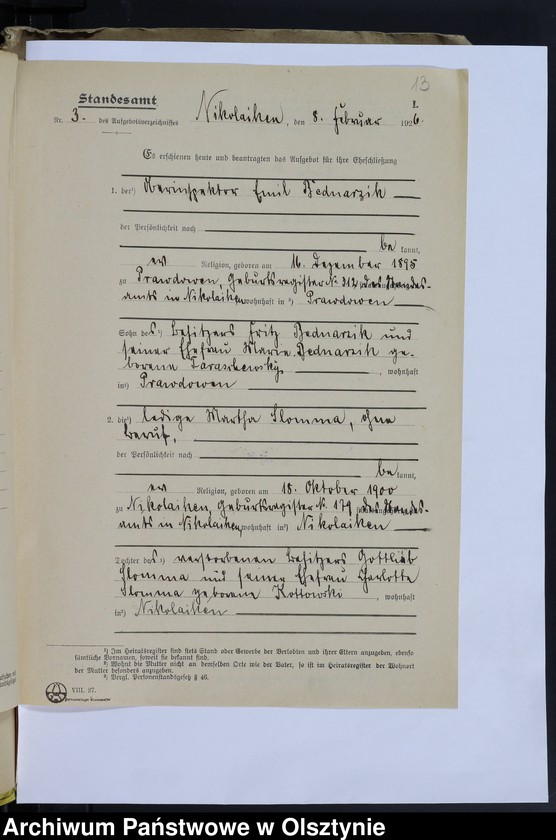 13
Standesamt
I.
Nr. 3. des Aufgebotsverzeichnisses Nikolaiken, den 8. Februar 1926.
Es erschienen heute und beantragten das Aufgebot für ihre Eheschließung
1. der¹) Oberinspektor Emil Bednarzik
der Persönlichkeit nach
be kannt,
ev Religion, geboren am 16. Dezember 1895
zu Prawdowen, Geburtsregister N. 312 des Standes-
amts in Nikolaiken, wohnhaft in ²) Prawdowen
Sohn des ¹) Besitzers Fritz Bednarzik und
seiner Ehefrau Marie Bednarzik ge-
borene , wohnhaft
in²) Prawdowen
2. die¹) ledige Martha Slomma, ohne
Beruf,
der Persönlichkeit nach
be kannt,
ev Religion, geboren am 18. Oktober 1900
zu Nikolaiken, Geburtsregister N. 179 des Standes-
amts in Nikolaiken, wohnhaft in²) Nikolaiken
Tochter des ¹) verstorbenen Besitzers Gottlieb
Slomma und seiner Ehefrau Charlotte
Slomma geborene Kottowski , wohnhaft
in²) Nikolaiken
¹) Im Heiratsregister sind stets Stand oder Gewerbe der Verlobten und ihrer Eltern anzugeben, ebenso
sämtliche Vornamen, soweit sie bekannt sind.
²) Wohnt die Mutter nicht an demselben Orte wie der Vater, so ist im Heiratsregister der Wohnort
der Mutter besonders anzugeben.
³) Vergl. Personenstandsgesetz § 46.
VIII. 27.
Archiwum Państwowe w Olsztynie